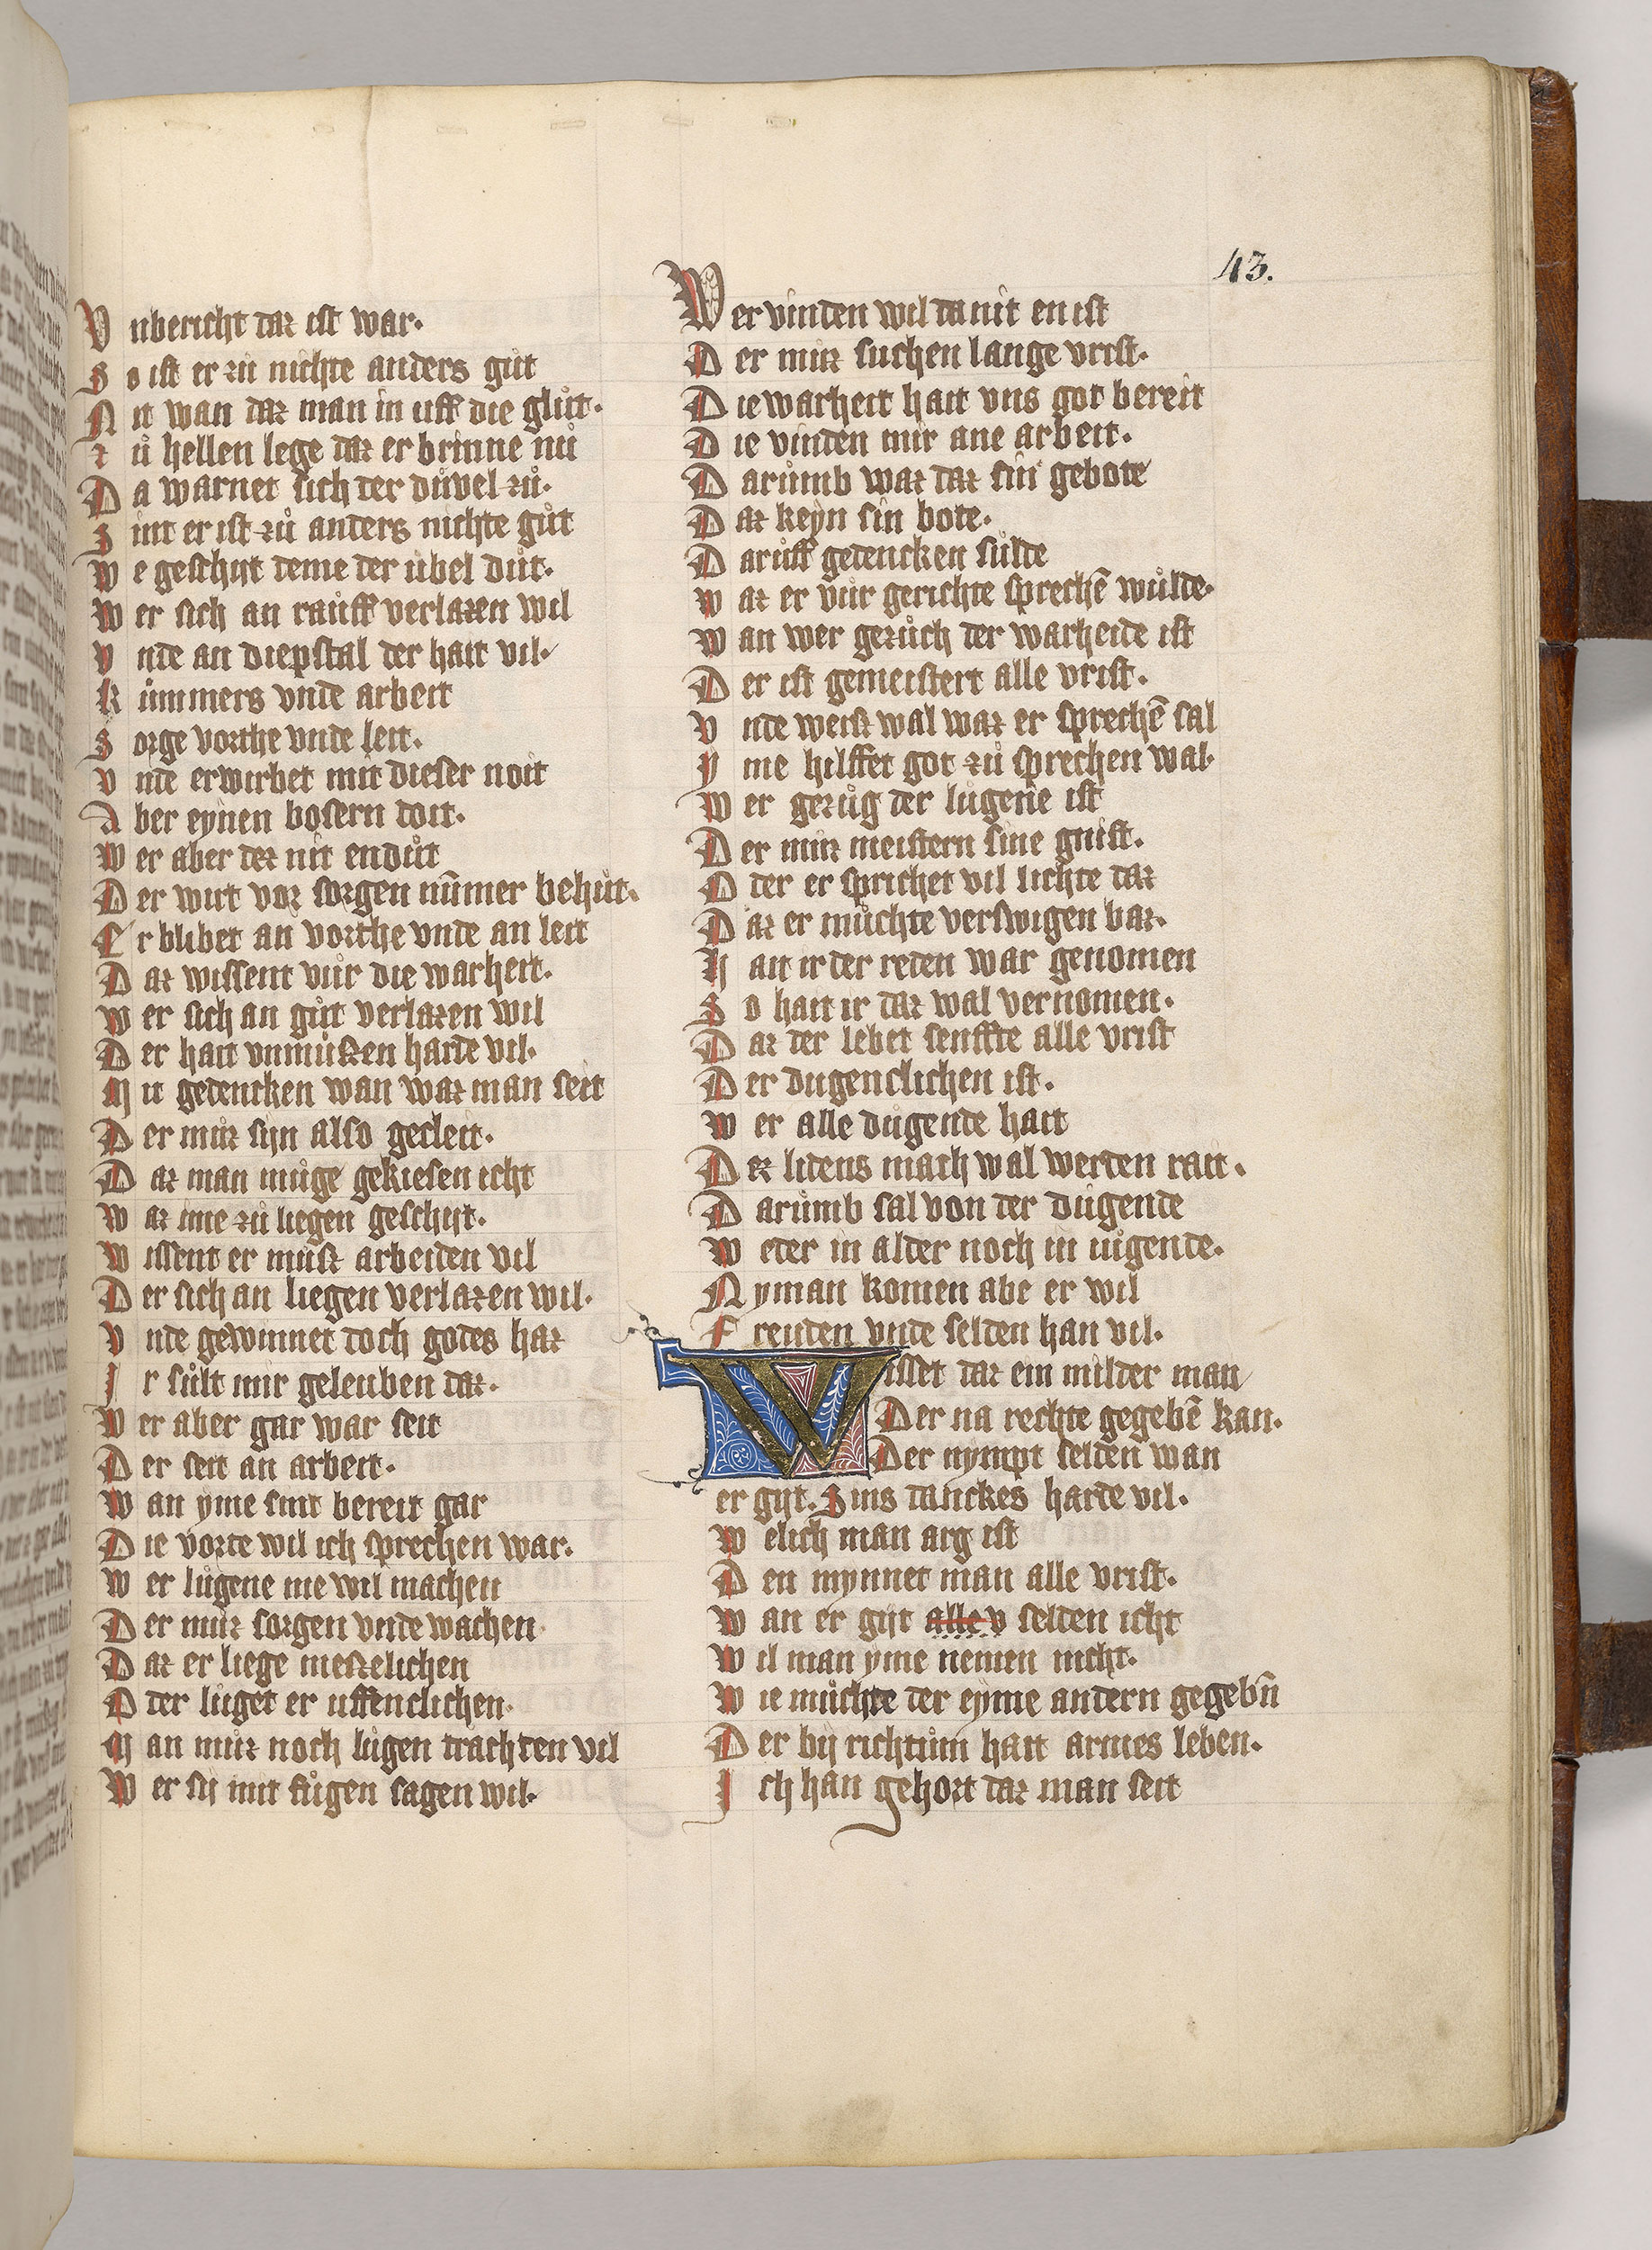 43.
Vnbericht daz ist war.
So ist er zu nichte anders gůt
Nit wan daz man in uff die glůit.
zů hellen lege daz er brinne nů
Da warnet sich der důvel zů.
Sint er ist zů anders nichte gůt
We geschyt deme der ubel důt.
Wer sich an rauff verlazen wil
Vnde an diepstal der hait vil.
Kůmmers vnde arbeit
Sorge vorthe vnde leit.
Vnde erwirbet mit dieser noit
Aber eynen bosern doit.
Wer aber der nit endůt
Der wirt vor sorgen nūmer behůt.
Er blibet an vorthe vnde an leit
Daz wissent vůr die warheit.
Wer sich an gůt verlazen wil
Der hait vnmůszen harde vil.
Mit gedencken wan waz man seit
Der můz syn also gecleit.
Daz man můge gekiesen icht
Waz ime zů liegen geschyt.
Wissent er můsz arbeiden vil
Der sich an liegen verlazen wil.
Vnde gewinnet doch godes haz
Ir sůlt mir geleuben daz.
Wer aber gar war seit
Der seit an arbeit.
Wan yme sint bereit gar
Die vorte wil ich sprechen war.
Wer lůgene me wil machen
Der můz sorgen vnde wachen
Daz er liege meszelichen
Oder lůget er uffenclichen.
Man můz noch lůgen trachten vil
Wer sy mit fůgen sagen wil.
Wer vinden wil da nit en ist
Der můz suchen lange vrist.
Die warheit hait vns got bereit
Die vinden mir ane arbeit.
Darůmb waz daz sin gebote
Daz keyn sin bote.
Darůff gedencken sůlde
Waz er vůr gerichte sprechē wůlde.
Wan wer gezůch der warheide ist
Der ist gemeistert alle vrist.
Vnde weisz wal waz er sprechē sal
Yme hilffet got zů sprechen wal.
Wer gezůg der lůgene ist
Der můz meistern sine gnist.
Oder er sprichet vil lichte daz
Daz er můchte verswigen baz.
Hait ir der reden war genomen
So hait ir daz wal vernomen.
Daz der lebet senffte alle vrist
Der dugenclichen ist.
Wer alle důgende hait
Dez lidens mach wal werden rait.
Darůmb sal von der důgende
Weder in alder noch in iůgende.
Nyman komen abe er wil
Freuden vnde selden han vil.
Wisset daz ein milder man
Der na rechte gegebē kan.
Der nympt selden wan
er gyt. Sins danckes harde vil.
Welich man arg ist
Den mynnet man alle vrist.
Wan er gyt alle v selden icht
Wil man yme nemen nicht.
Wie můchte der eyme andern gegebn̄
Der by richtům hait armes leben.
Ich han gehort daz man seit